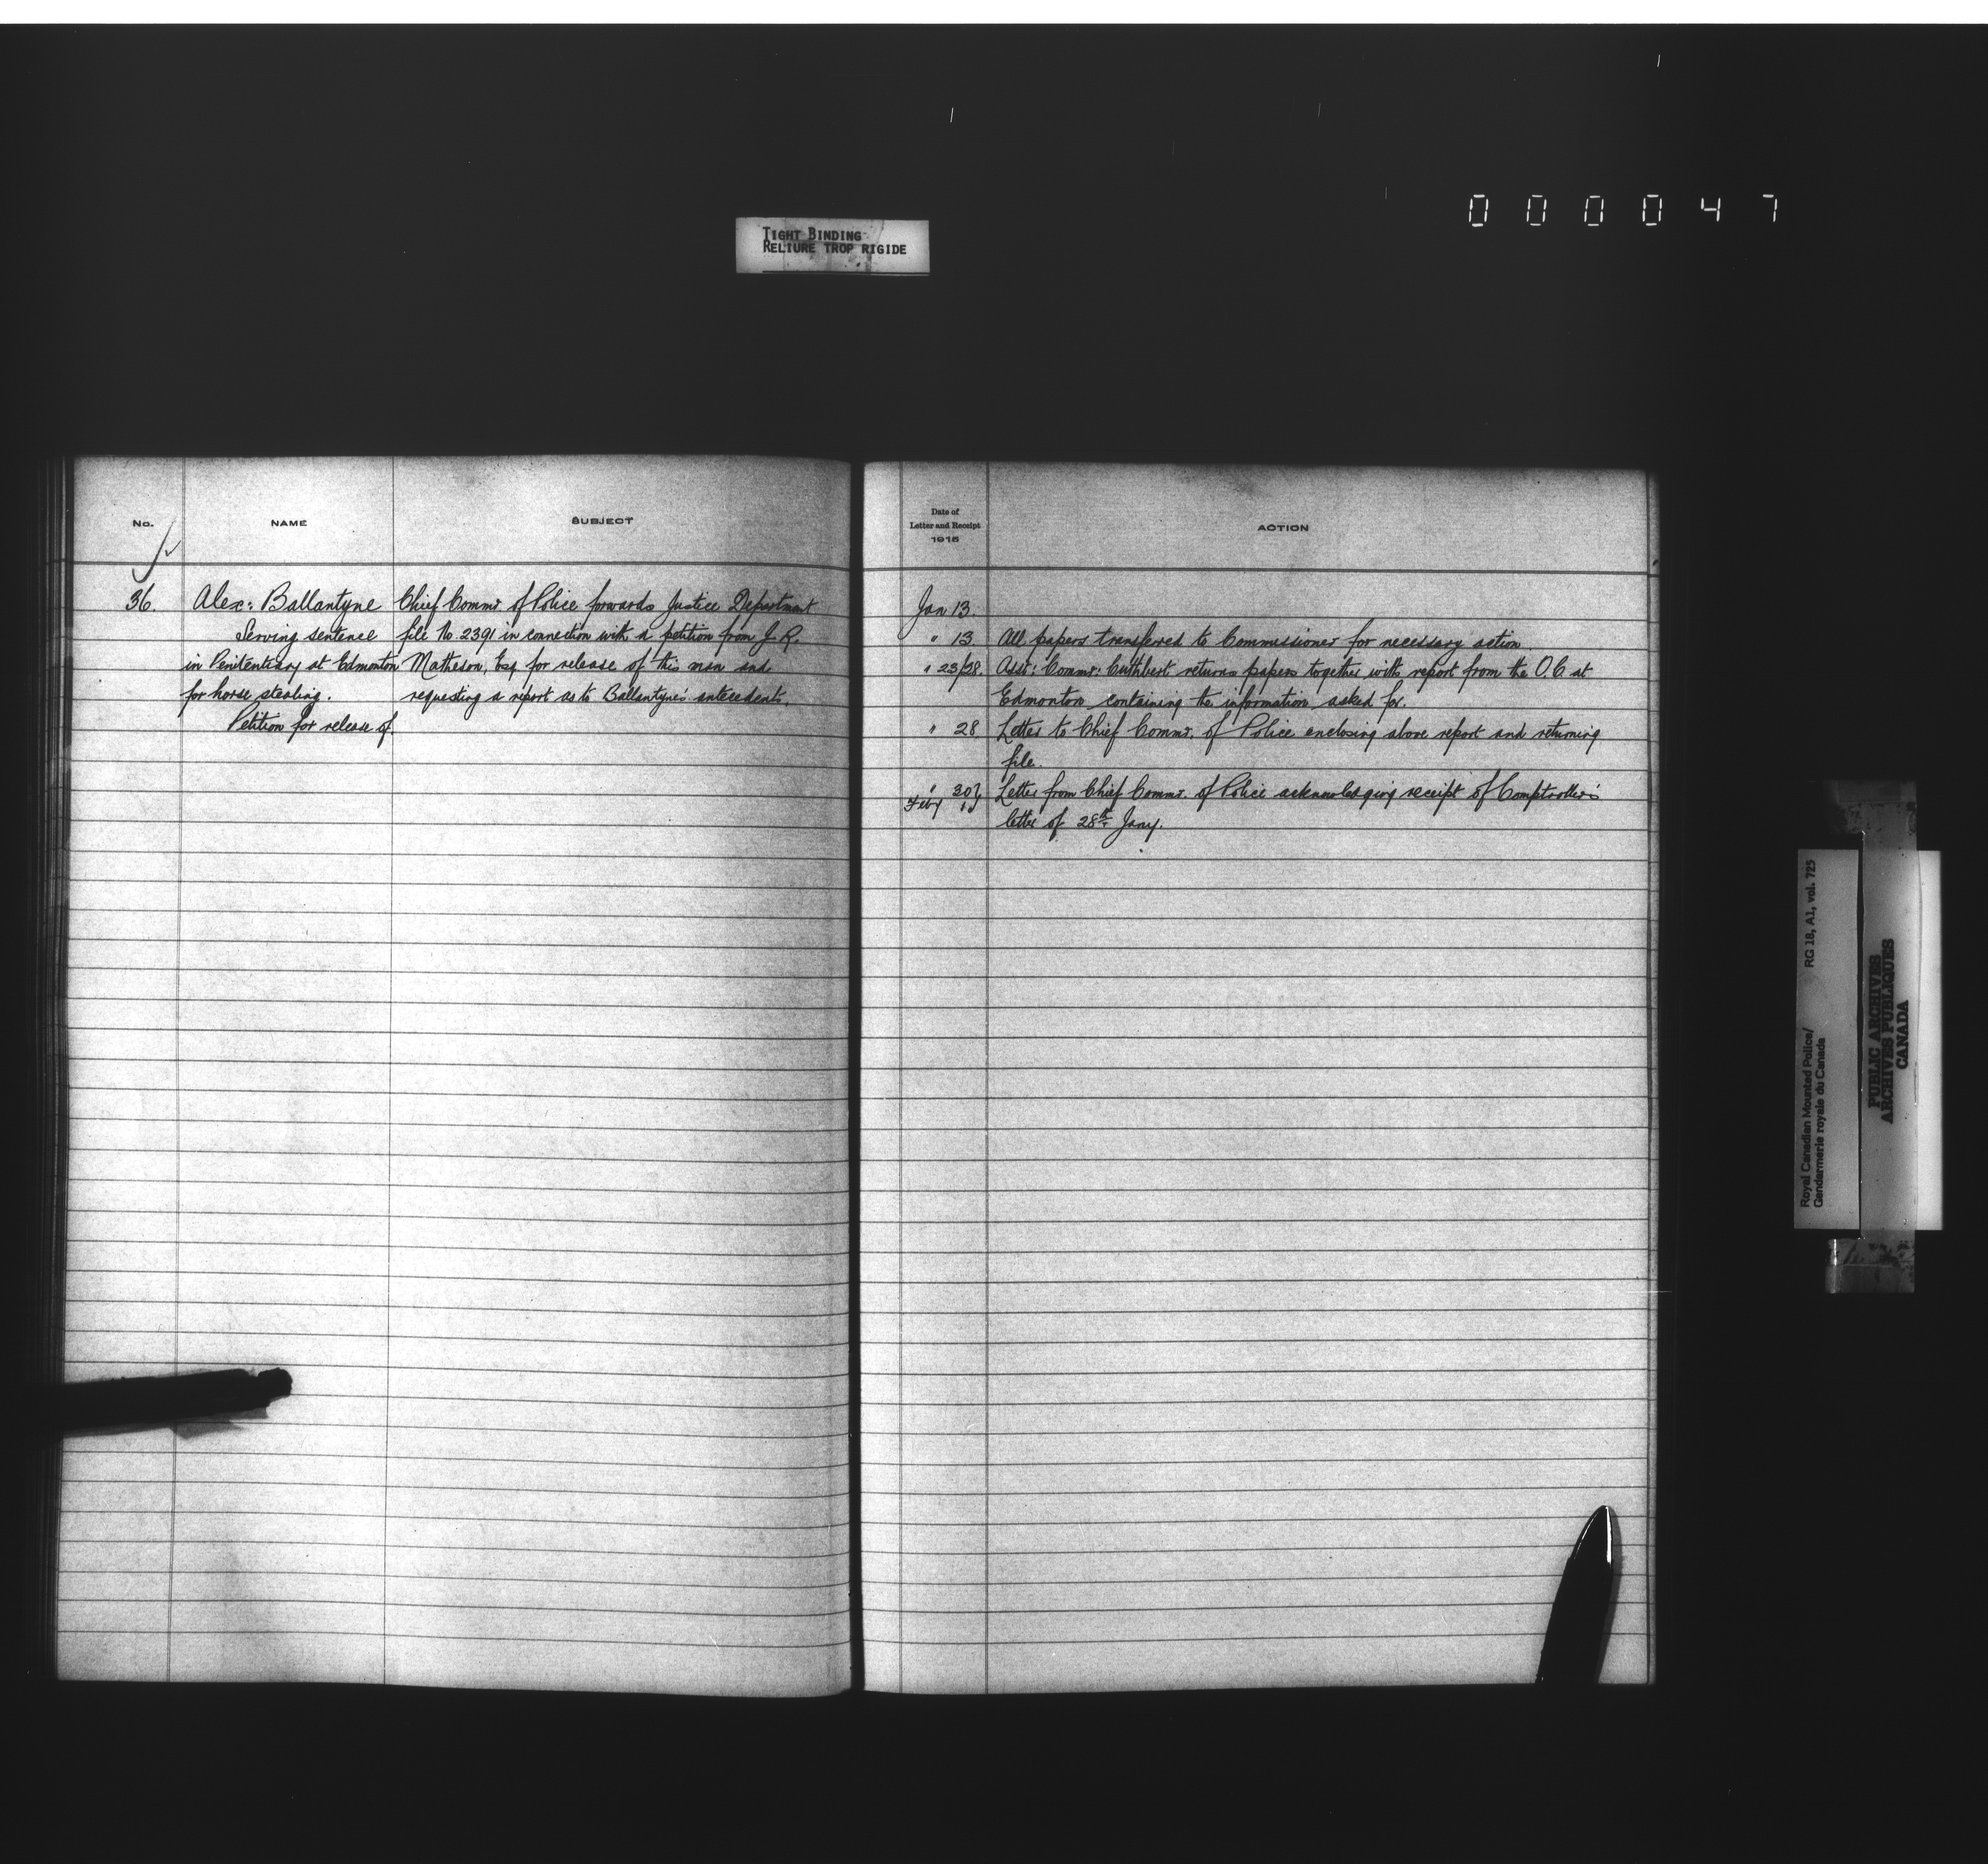 000047
TIGHT BINDING
RELIURE TROP RIGIDE
No.
NAME
SUBJECT
36.
Alex: Ballantyne
Serving sentence
in Penitentiary at Edmonton
for horse stealing.
Petition for release of.
Chief Commr. of Police forwards Justice Department
file No 2391 in connection with a petition from J. R.
Matheson, Esq for release of this man and
requesting a report as to Ballantyne's antecedents.
Date of
Letter and Receipt
1915
ACTION
Jan 13.
" 13 All papers transferred to Commissioner for necessary action.
" 23/28. Asst: Commr: Cuthbert returns papers together with report from the O.C at
Edmonton containing the information asked for.
" 28 Letter to Chief Commr. of Police enclosing above report and returning
file.
" 30} Letter from Chief Commr. of Police acknowledging receipt of Comptroller's
Feby 1} letter of 28th Jany.
Royal Canadian Mounted Police/
Gendarmerie royale du Canada
RG 18, A1, vol. 725
PUBLIC ARCHIVES
ARCHIVES PUBLIQUES
CANADA